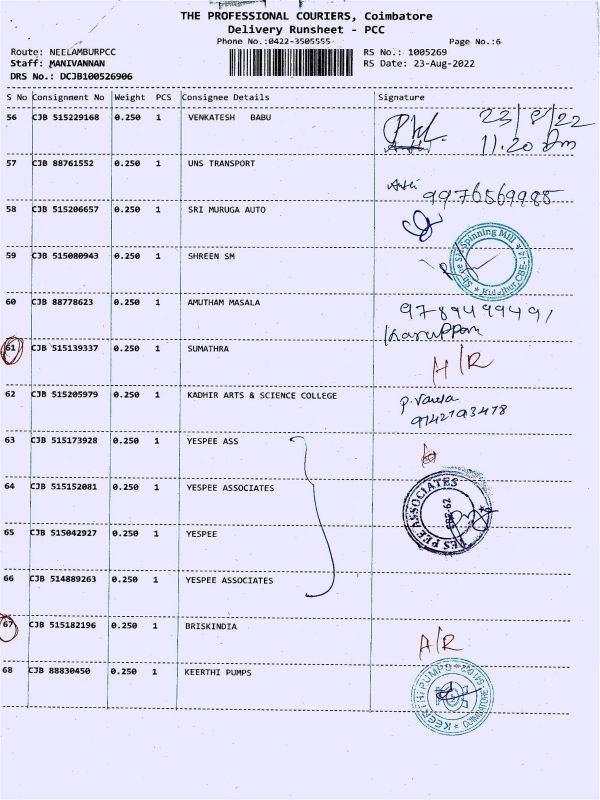 THE PROFESSIONAL COURIERS, Coimbatore
Delivery Runsheet - PCC
Phone No.:0422-3505555 Page No.:6
Route: NEELAMBURPCC RS No.: 1005269
Staff: MANIVANNAN RS Date: 23-Aug-2022
DRS No.: DCJB100526906
S No Consignment No Weight PCS Consignee Details Signature
56 CJB 515229168 0.250 1 VENKATESH BABU 23/8/22
11.20 Am
57 CJB 88761552 0.250 1 UNS TRANSPORT
9976569985
58 CJB 515206657 0.250 1 SRI MURUGA AUTO
59 CJB 515080943 0.250 1 SHREEN SM
Spinning Mill CBE-14
60 CJB 88778623 0.250 1 AMUTHAM MASALA
9789499491
Karuppan
61 CJB 515139337 0.250 1 SUMATHRA
A/R
62 CJB 515205979 0.250 1 KADHIR ARTS & SCIENCE COLLEGE
9142793478
63 CJB 515173928 0.250 1 YESPEE ASS
64 CJB 515152081 0.250 1 YESPEE ASSOCIATES
YES PEE ASSOCIATES CBE-62
65 CJB 515042927 0.250 1 YESPEE
66 CJB 514889263 0.250 1 YESPEE ASSOCIATES
67 CJB 515182196 0.250 1 BRISKINDIA
A/R
68 CJB 88830450 0.250 1 KEERTHI PUMPS
KEERTHI PUMPS COIMBATORE